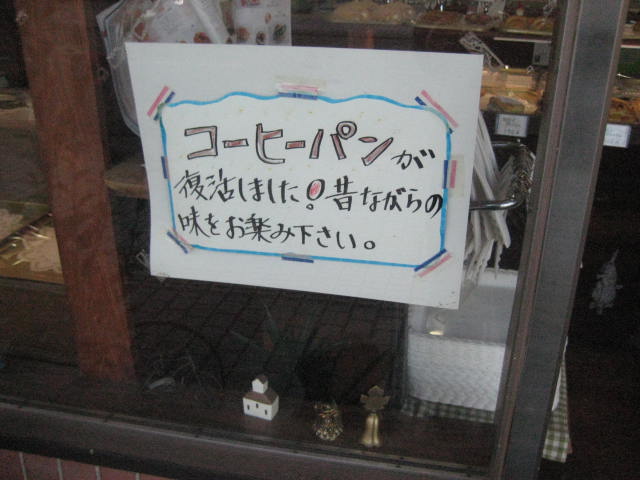 コーヒーパンが
復活しました!昔ながらの
味をお楽み下さい。